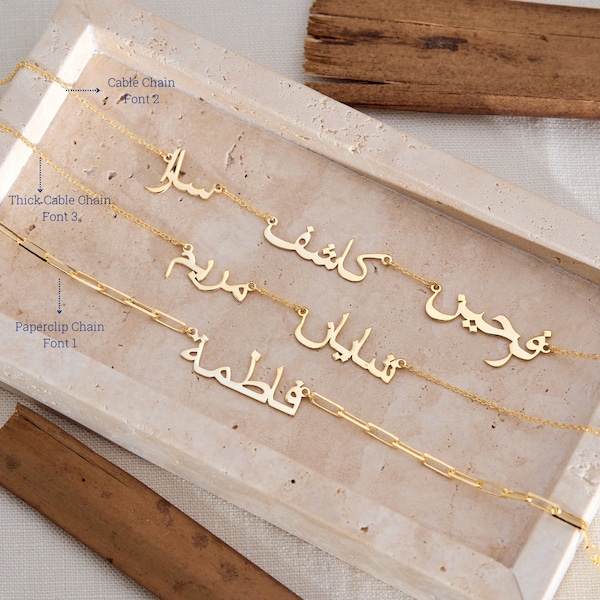 Cable Chain
Font 2
سارا
كاشف
فرحين
Thick Cable Chain
Font 3
مريم
شايان
Paperclip Chain
Font 1
فاطمة